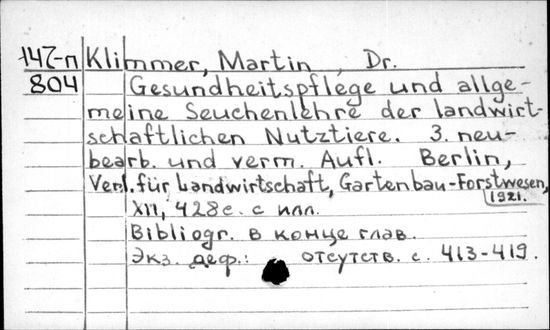 147-п Klimmer, Martin, Dr.
804 Gesundheitspflege und allge-
meine Seuchenlehre der landwirt-
schaftlichen Nutztiere. 3. neu-
bearb. und verm. Aufl. Berlin,
Verl. für Landwirtschaft, Gartenbau-Forstwesen,
1921.
XII, 428 с. с илл.
Bibliogr. в конце глав.
Экз. деф.: отсутств. с. 413-419.